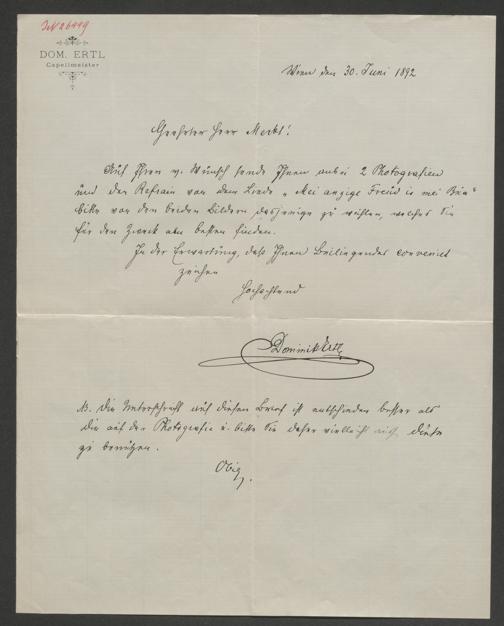 JN 26449
DOM. ERTL
Capellmeister
Wien den 30. Juni 1892
Geehrter Herr Merkl!
Auf Ihren w. Wunsch sende Ihnen anbei 2 Photografien
und den Refrain von dem Liede „Mei anzige Freud is mei Bua“
bitte von den beiden Bildern dasjenige zu wählen, welches Sie
für den Zweck am besten finden.
In der Erwartung, daß Ihnen Beiliegendes convenirt
zeichne
Hochachtend
Dominik Ertl
NB. Die Unterschrift auf diesem Brief ist entschieden besser als
die auf der Photografie u. bitte Sie daher vielleicht diese
zu benützen.
Obig.